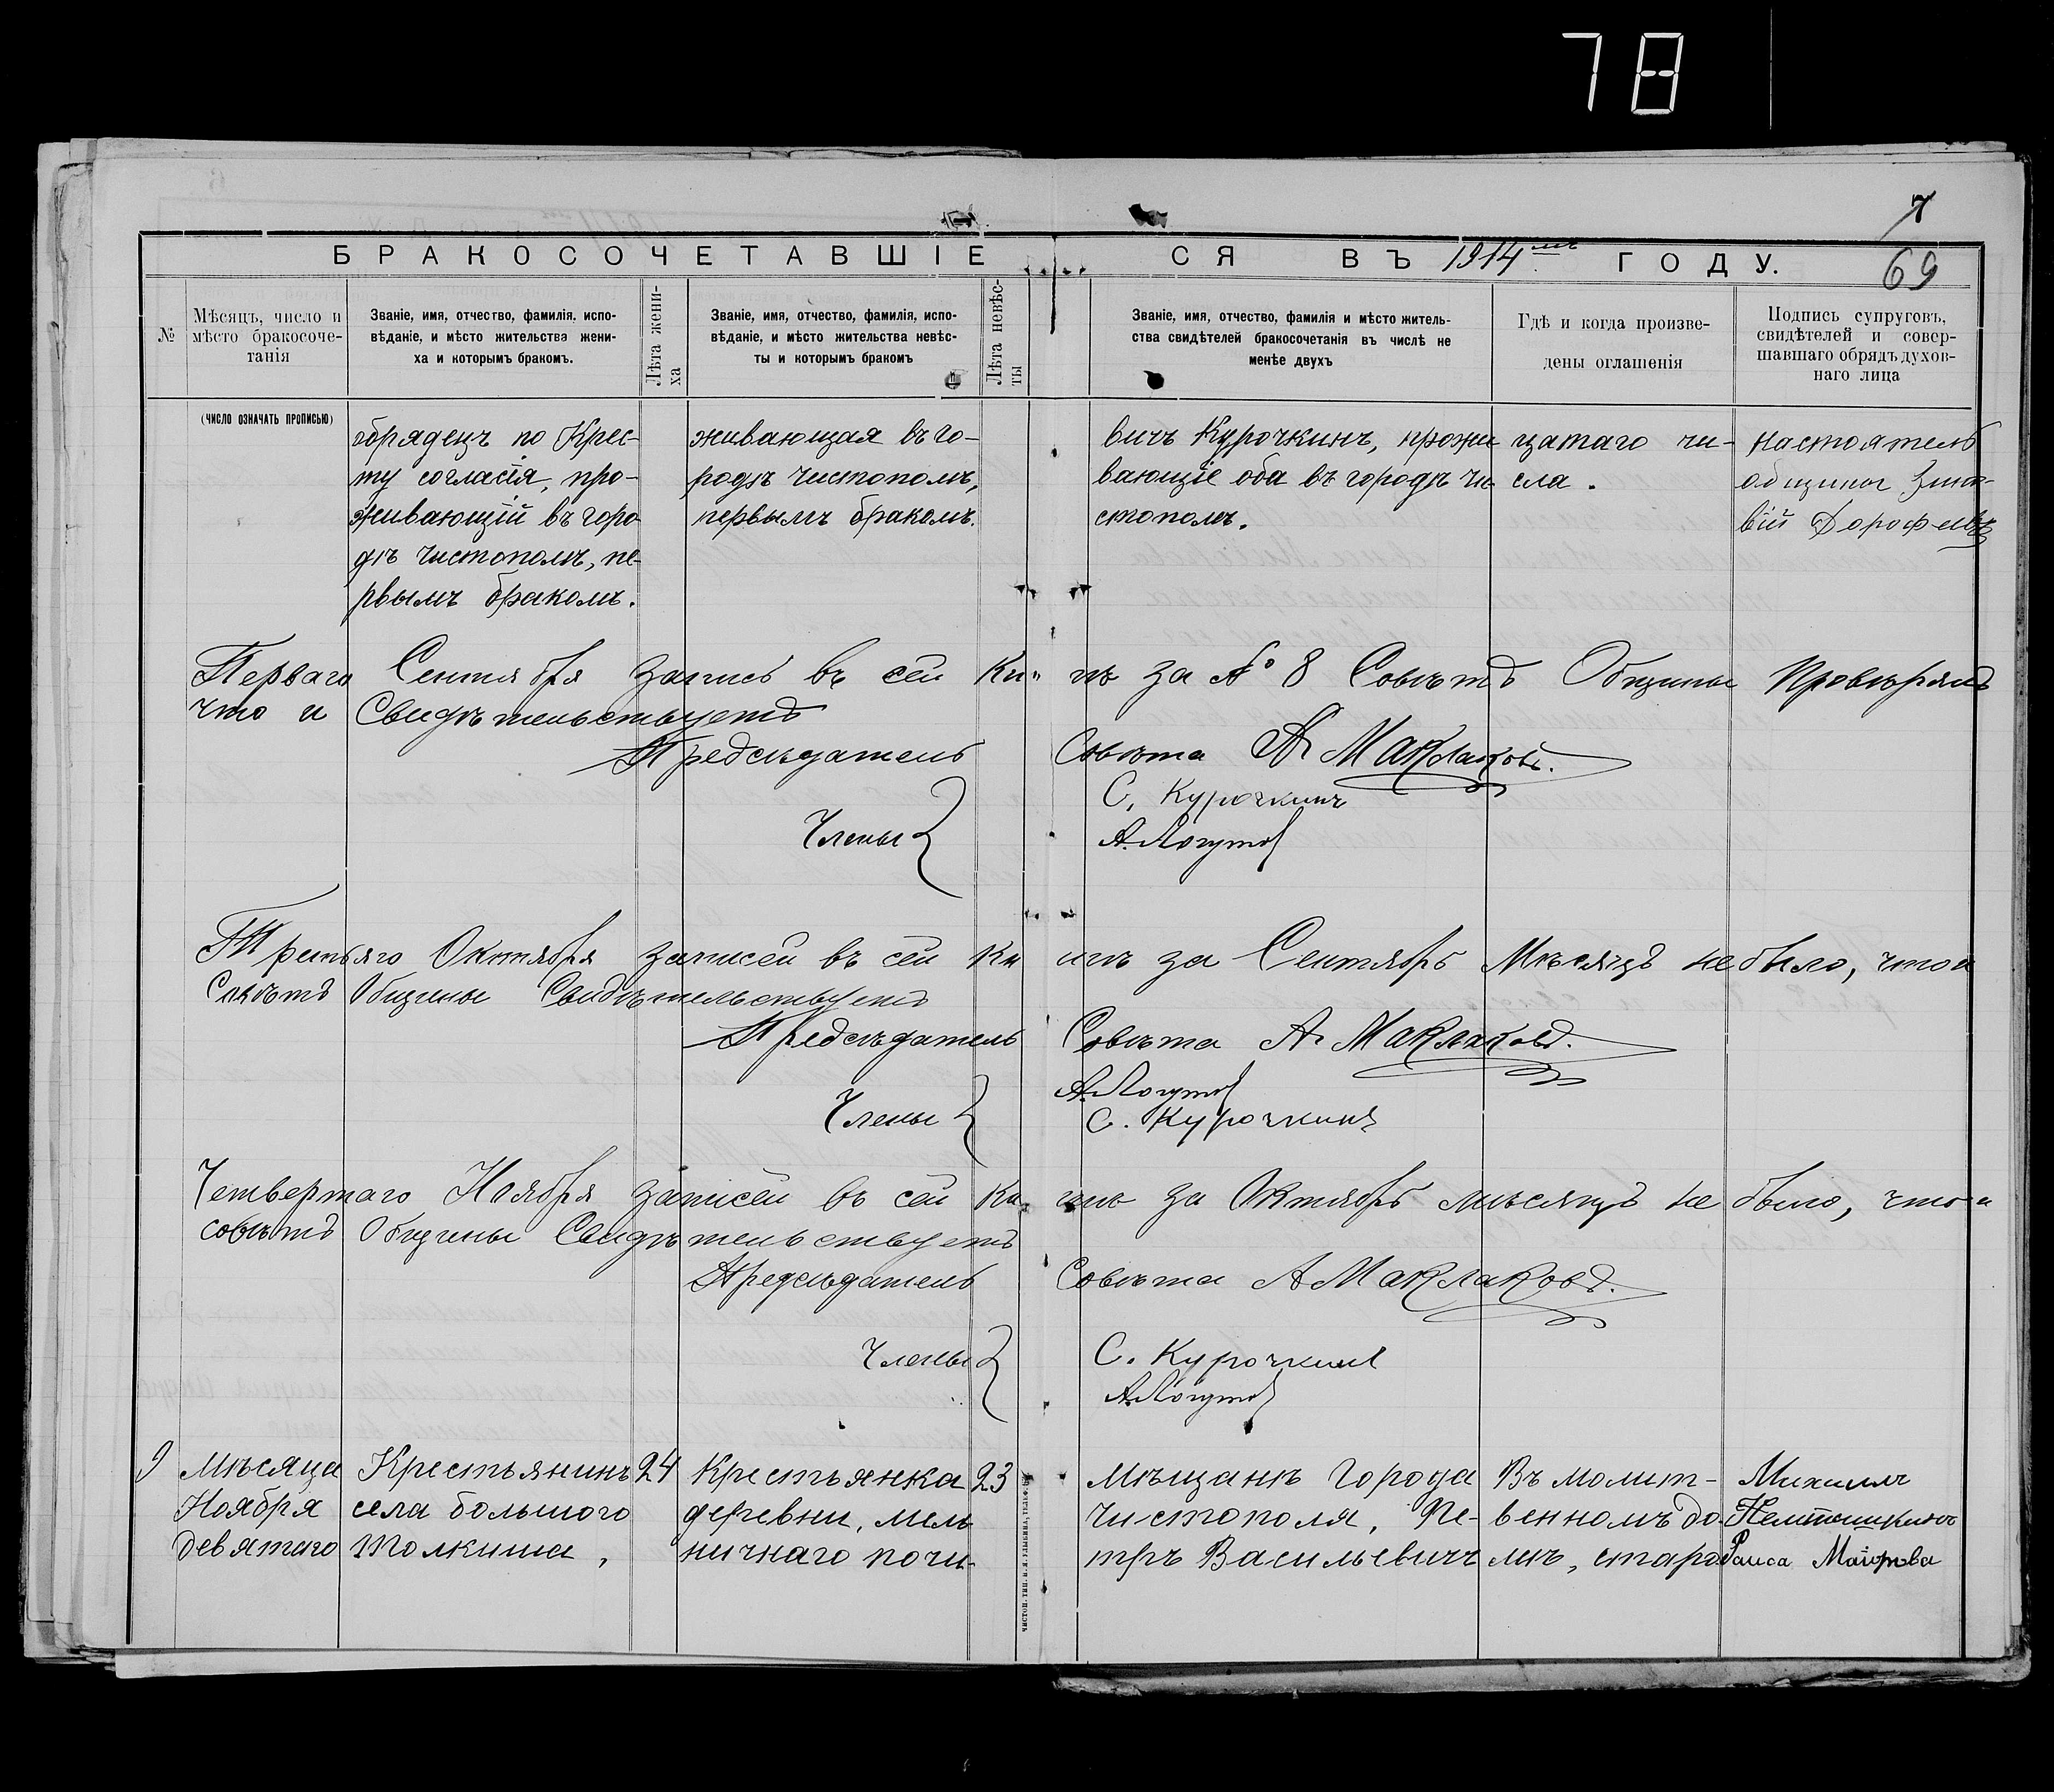 78
7
БРАКОСОЧЕТАВШІЕСЯ ВЪ 1914мъ ГОДУ.
69
№
Мѣсяцъ, число и мѣсто бракосоче-
танія
Званіе, имя, отчество, фамилія, испо-
вѣданіе, и мѣсто жительства жени-
ха и которымъ бракомъ.
Лѣта жени-
ха
Званіе, имя, отчество, фамилія, испо-
вѣданіе, и мѣсто жительства невѣс-
ты и которымъ бракомъ
Лѣта невѣс-
ты
Званіе, имя, отчество, фамилія и мѣсто житель-
ства свидѣтелей бракосочетанія въ числѣ не
менѣе двухъ
Гдѣ и когда произве-
дены оглашенія
Подпись супруговъ,
свидѣтелей и совер-
шавшаго обрядъ духов-
наго лица
(ЧИСЛО ОЗНАЧАТЬ ПРОПИСЬЮ)
обрядецъ по Крес-
ту согласія, про-
живающій въ горо
дѣ Чистополѣ, пе-
рвымъ бракомъ.
живающая въ го-
родѣ Чистополѣ,
первымъ бракомъ.
вичъ Курочкинъ, прожи
вающіе оба въ городѣ Чи
стополѣ.
цатаго чи-
сла.
настоятель
общины Зино-
вій Дорофеевъ
Перваго Сентября запись въ сей Кн-гѣ за № 8 Совѣтъ Общины провѣрялъ
что и Свидѣтельствуетъ
Предсѣдатель Совѣта А Маклаковъ.
С. Курочкинъ
Члены
А. Логутов
Третьяго Октября записей въ сей Книгѣ за Сентябрь Мѣсяцъ не было, что и
Совѣтъ Общины Свидѣтельствуетъ
Предсѣдатель Совѣта А Маклаковъ.
А. Логутов
Члены
С. Курочкинъ
Четвертаго Ноября записей въ сей Книгѣ за Октябрь мѣсяцъ не было, что и
совѣтъ Общины Свидѣтельствуетъ
Предсѣдатель Совѣта А Маклаковъ.
Члены
С. Курочкинъ
А. Логутов
9
Мѣсяца
Ноября
девятаго
Крестьянинъ
села большого
Толкиша,
24
Крестьянка
деревни, мель
ничнаго почи-
23
Мѣщане Города
Чистополя, Пе-
тръ Васильевичъ
Въ молит-
венномъ до-
мѣ, старо
Михаилъ
Раиса Маiорова
ЧИСТОП. ТИП.